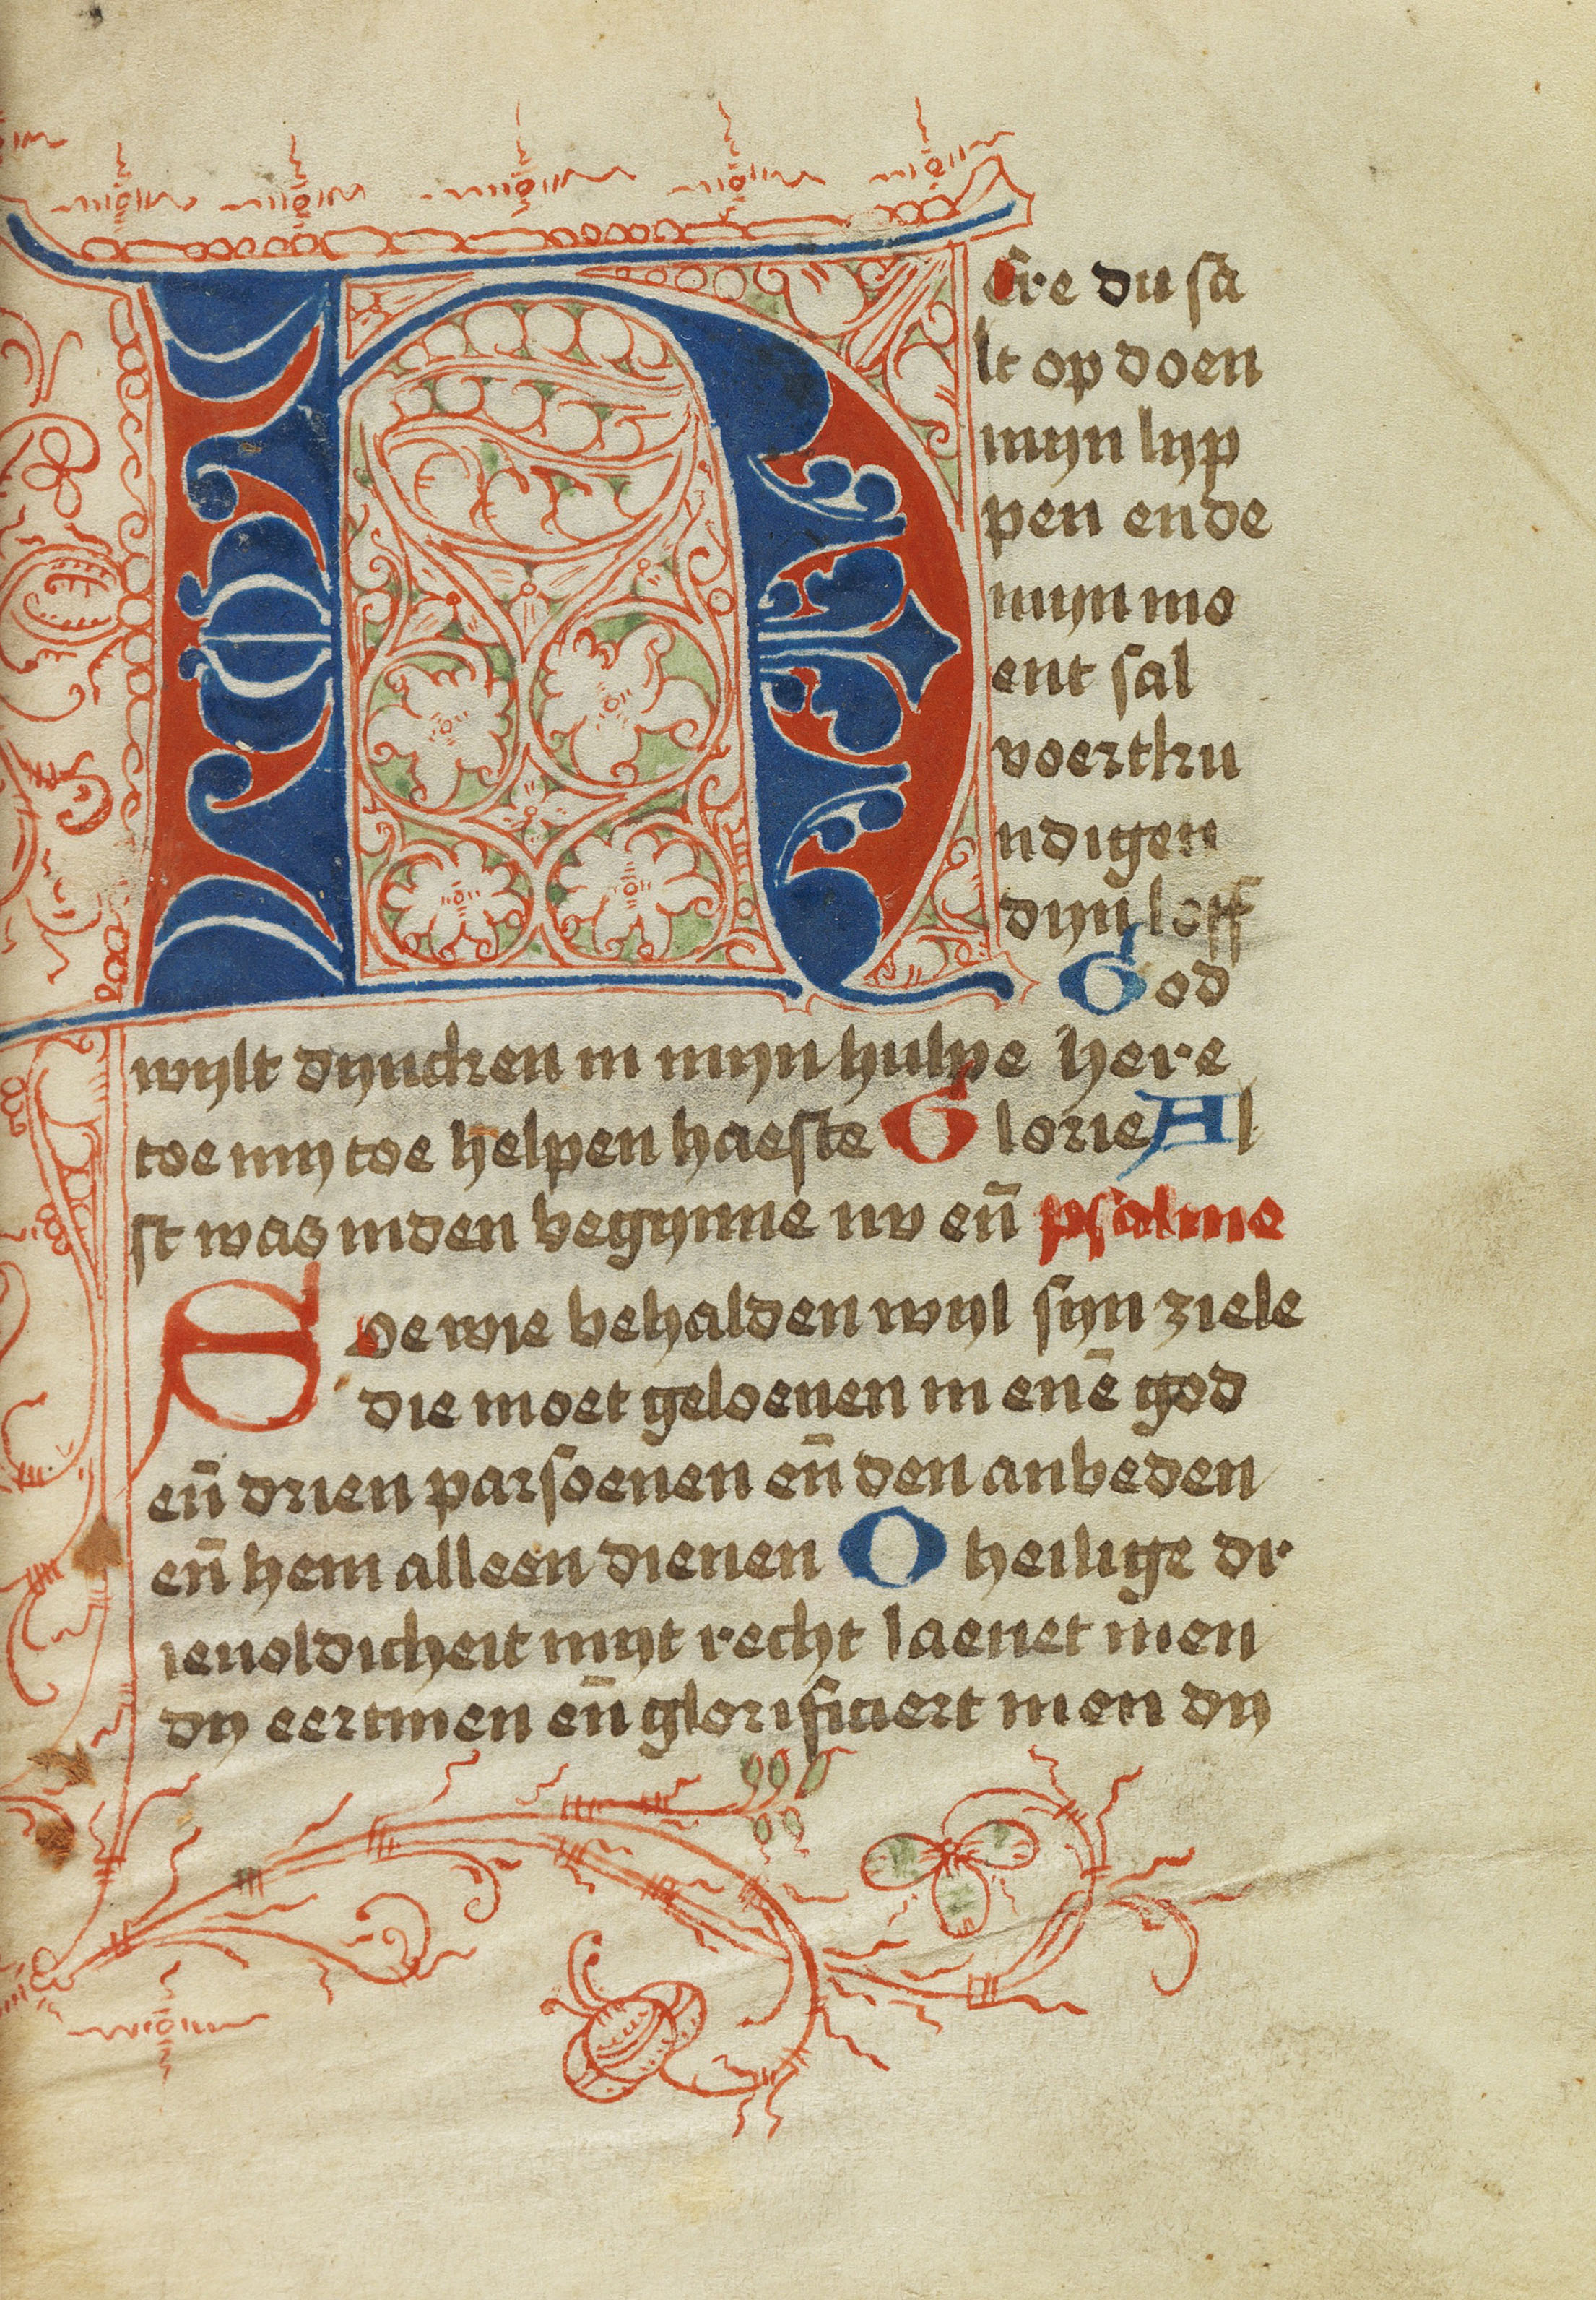 Here du sa
lt op doen
mijn lijp
pen ende
mijn mo
ent sal
voertku
ndigen
dijn loff
God
wijlt dijncken in mijn hulpe here
toe mij toe helpen haeste Glorie Al
st was inden begijnne nv eñ psalme
Soe wie behalden wijl sijn ziele
die moet geloeuen in enē god
eñ drien parsoenen eñ den anbeden
eñ hem alleen dienen O heilige dr
ieuoldicheit mijt recht laeuet men
dij eertmen eñ glorificiert men dij